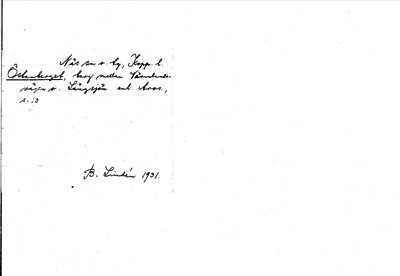 Nås sn o. by, Kopp. l.
Östanberget, berg mellan Värmlands-
vägen o. Långsjön enl. Avas.,
s. 13
B. Lindén 1931.